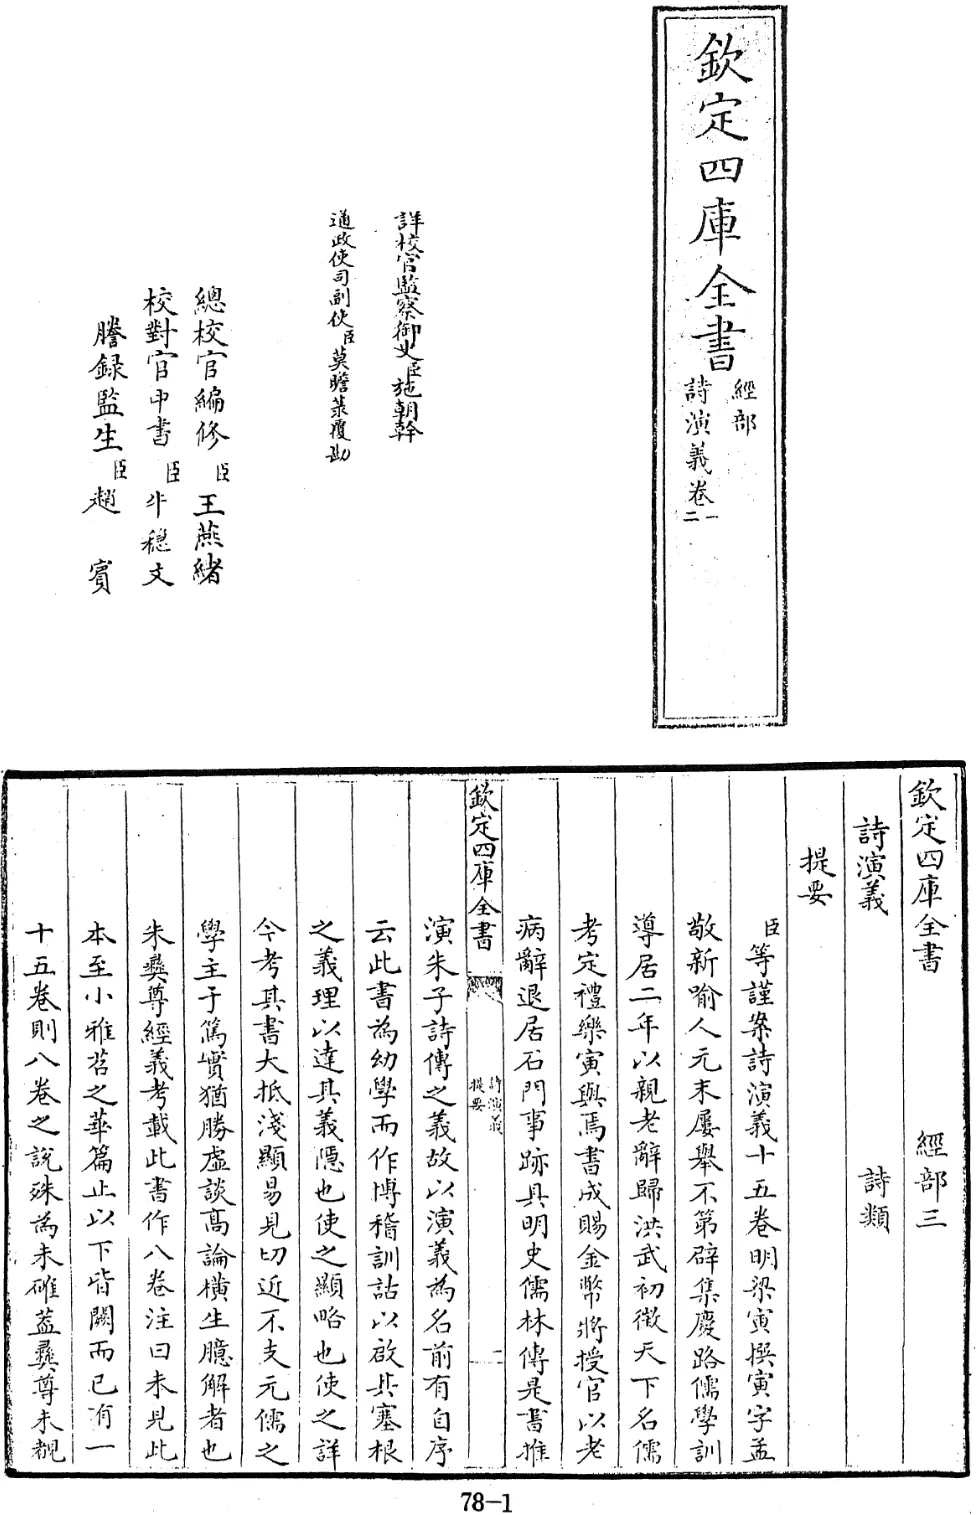 欽定四庫全書
經部
詩演義卷一
二
詳校官監察御史臣施朝幹
通政使司副使臣莫瞻菉覆勘
總校官編修臣王燕緒
校對官中書臣牛稔文
謄錄監生臣趙賓
欽定四庫全書 經部三
詩演義 詩類
提要
臣等謹案詩演義十五卷明梁寅撰寅字孟
敬新喻人元末屢舉不第辟集慶路儒學訓
導居二年以親老辭歸洪武初徵天下名儒
考定禮樂寅與焉書成賜金幣將授官以老
病辭退居石門事跡具明史儒林傳是書推
欽定四庫全書
詩演義
提要
一
演朱子詩傳之義故以演義為名前有自序
云此書為幼學而作博稽訓詁以啟其塞根
之義理以達其義隱也使之顯略也使之詳
今考其書大抵淺顯易見切近不支元儒之
學主于篤實猶勝虛談高論橫生臆解者也
朱彝尊經義考載此書作八卷注曰未見此
本至小雅苕之華篇止以下皆闕而已有一
十五卷則八卷之說殊為未確蓋彝尊未覩
78-1